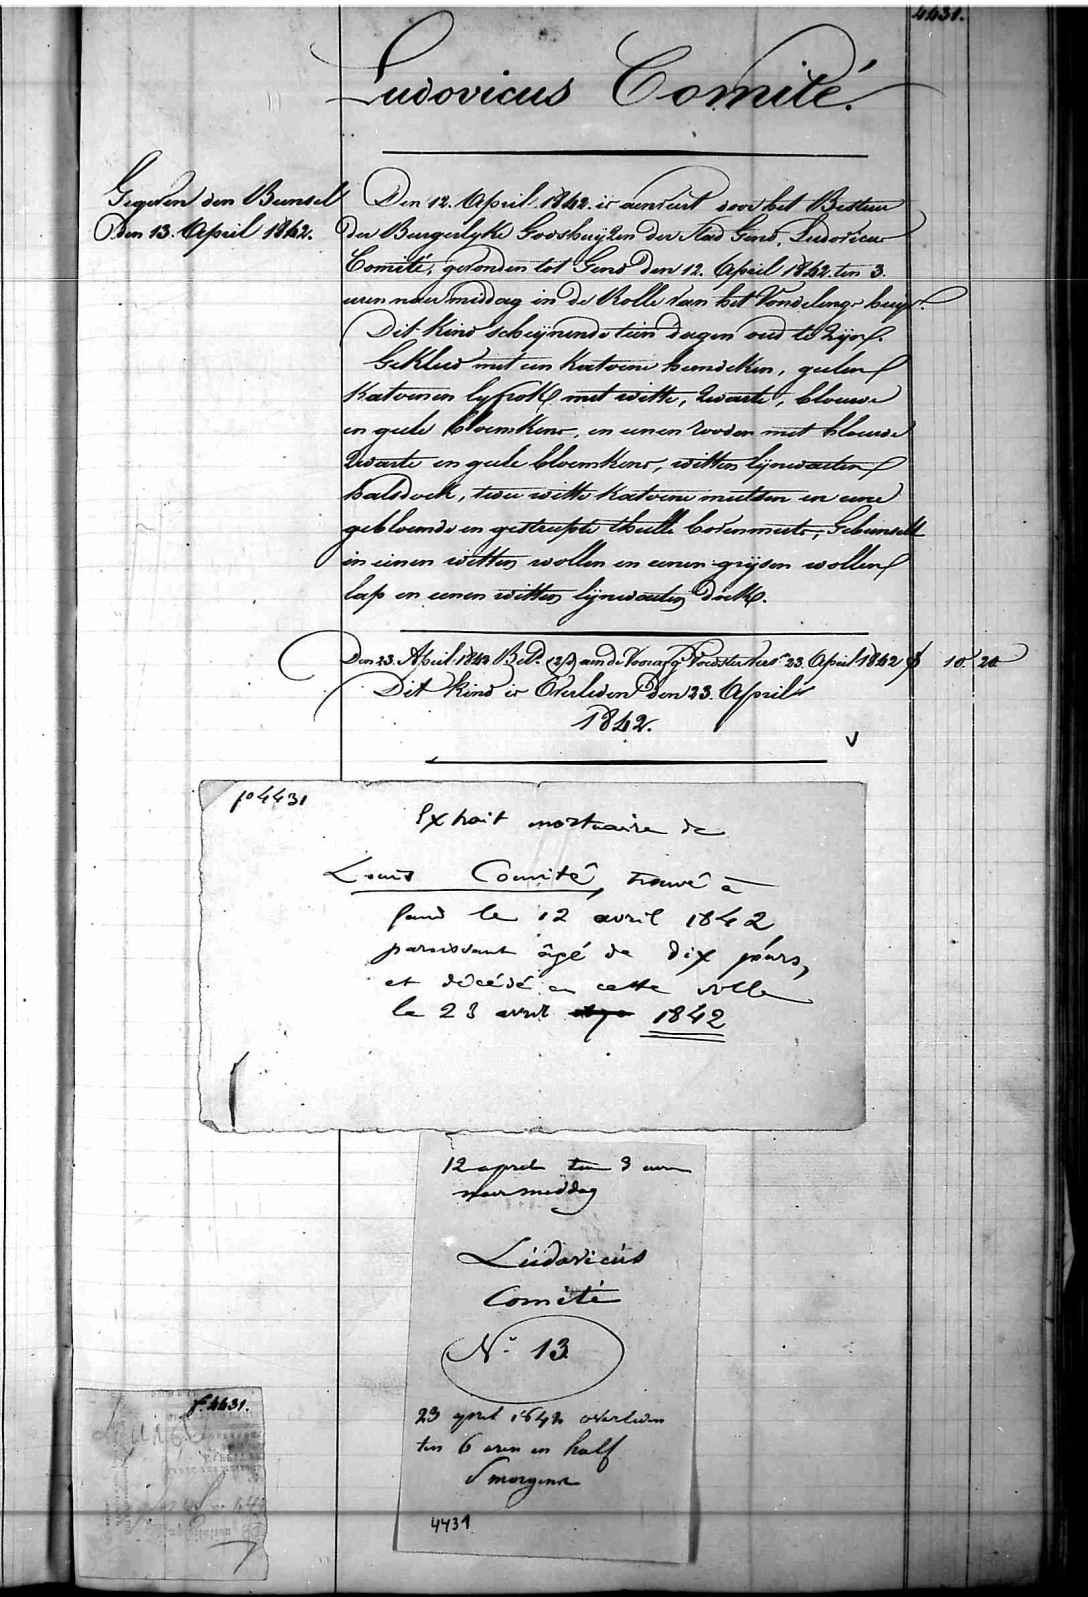 4431.
Ludovicus Comité.
Gegeven den Bunsel
Den 13. April 1842.
Den 12. April 1842. is aenveirt door het Bestier
der Burgerlyke Godshuijzen der Stad Gend, Ludovicus
Comité, gevonden tot Gend den 12. April 1842. ten 3.
uren naer middag in de Rolle van het Vondelings huijs.
Dit kind scheijnende tien dagen oud te zijn.
Gekleed met een katoene hemdeken, geelen
katoenen lyfrok met witte, zwarte, blauwe
en geele bloemkens, en eenen rooden met blauwe
zwarte en geele bloemkens, witten lijnwaeten
halsdoek, twee witte katoene mutsen en eene
gebloemde en gestreepte thulle bovenmuts, Gebunselt
in eenen witten wollen en eenen grijsen wollen
lap en eenen witten lijnwaeten doek.
Den 23. April 1842 Bet. aen de Voedster 23. April 1842 10 20
Dit kind is Overleden Den 23. April
1842.
fo 4431
Extrait mortuaire de
Louis Comité, trouvé à
Gand le 12 avril 1842
paraissant âgé de dix jours,
et décédé en cette ville
le 23 avril 1842
12 april ten 3 uren
naermiddag
Ludovicus
Comité
No 13
23 april 1842 overleden
ten 6 uren en half
S morgens
4431
f. 4431.